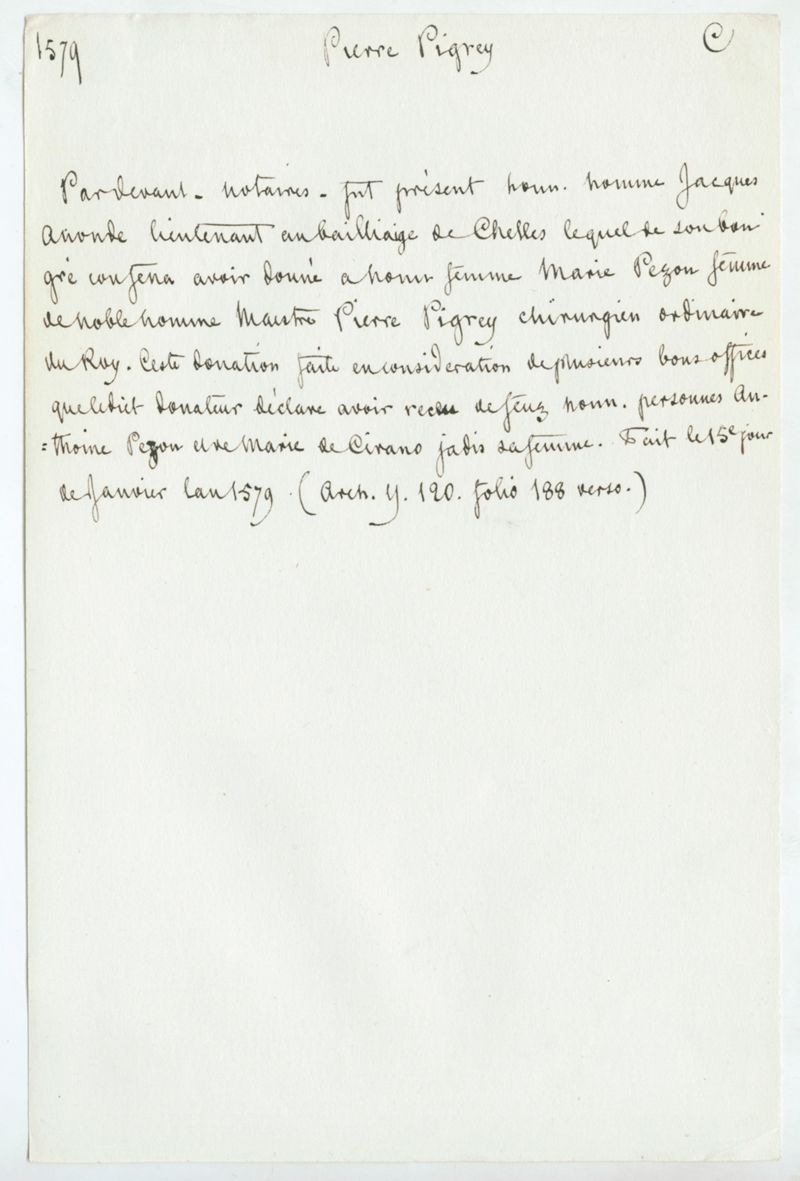 1579 Pierre Pigrey C
Pardevant - notaires - fut présent honn. homme Jacques
lieutenant au bailliaige de Chelles lequel de son bon
gré confessa avoir donné a honn femme Marie Pezon femme
de noble homme Maistre Pierre Pigrey chirurgien ordinaire
du Roy. Ceste donation faite en consideration de plusieurs bons offices
que ledict donateur déclare avoir receu de feuz honn. personnes An-
=thoine Pezon et de Marie de Cirano jadis sa femme. Fait le 15e jour
de Janvier l'an 1579. (Arch. Y. 120. folio 188 verso.)